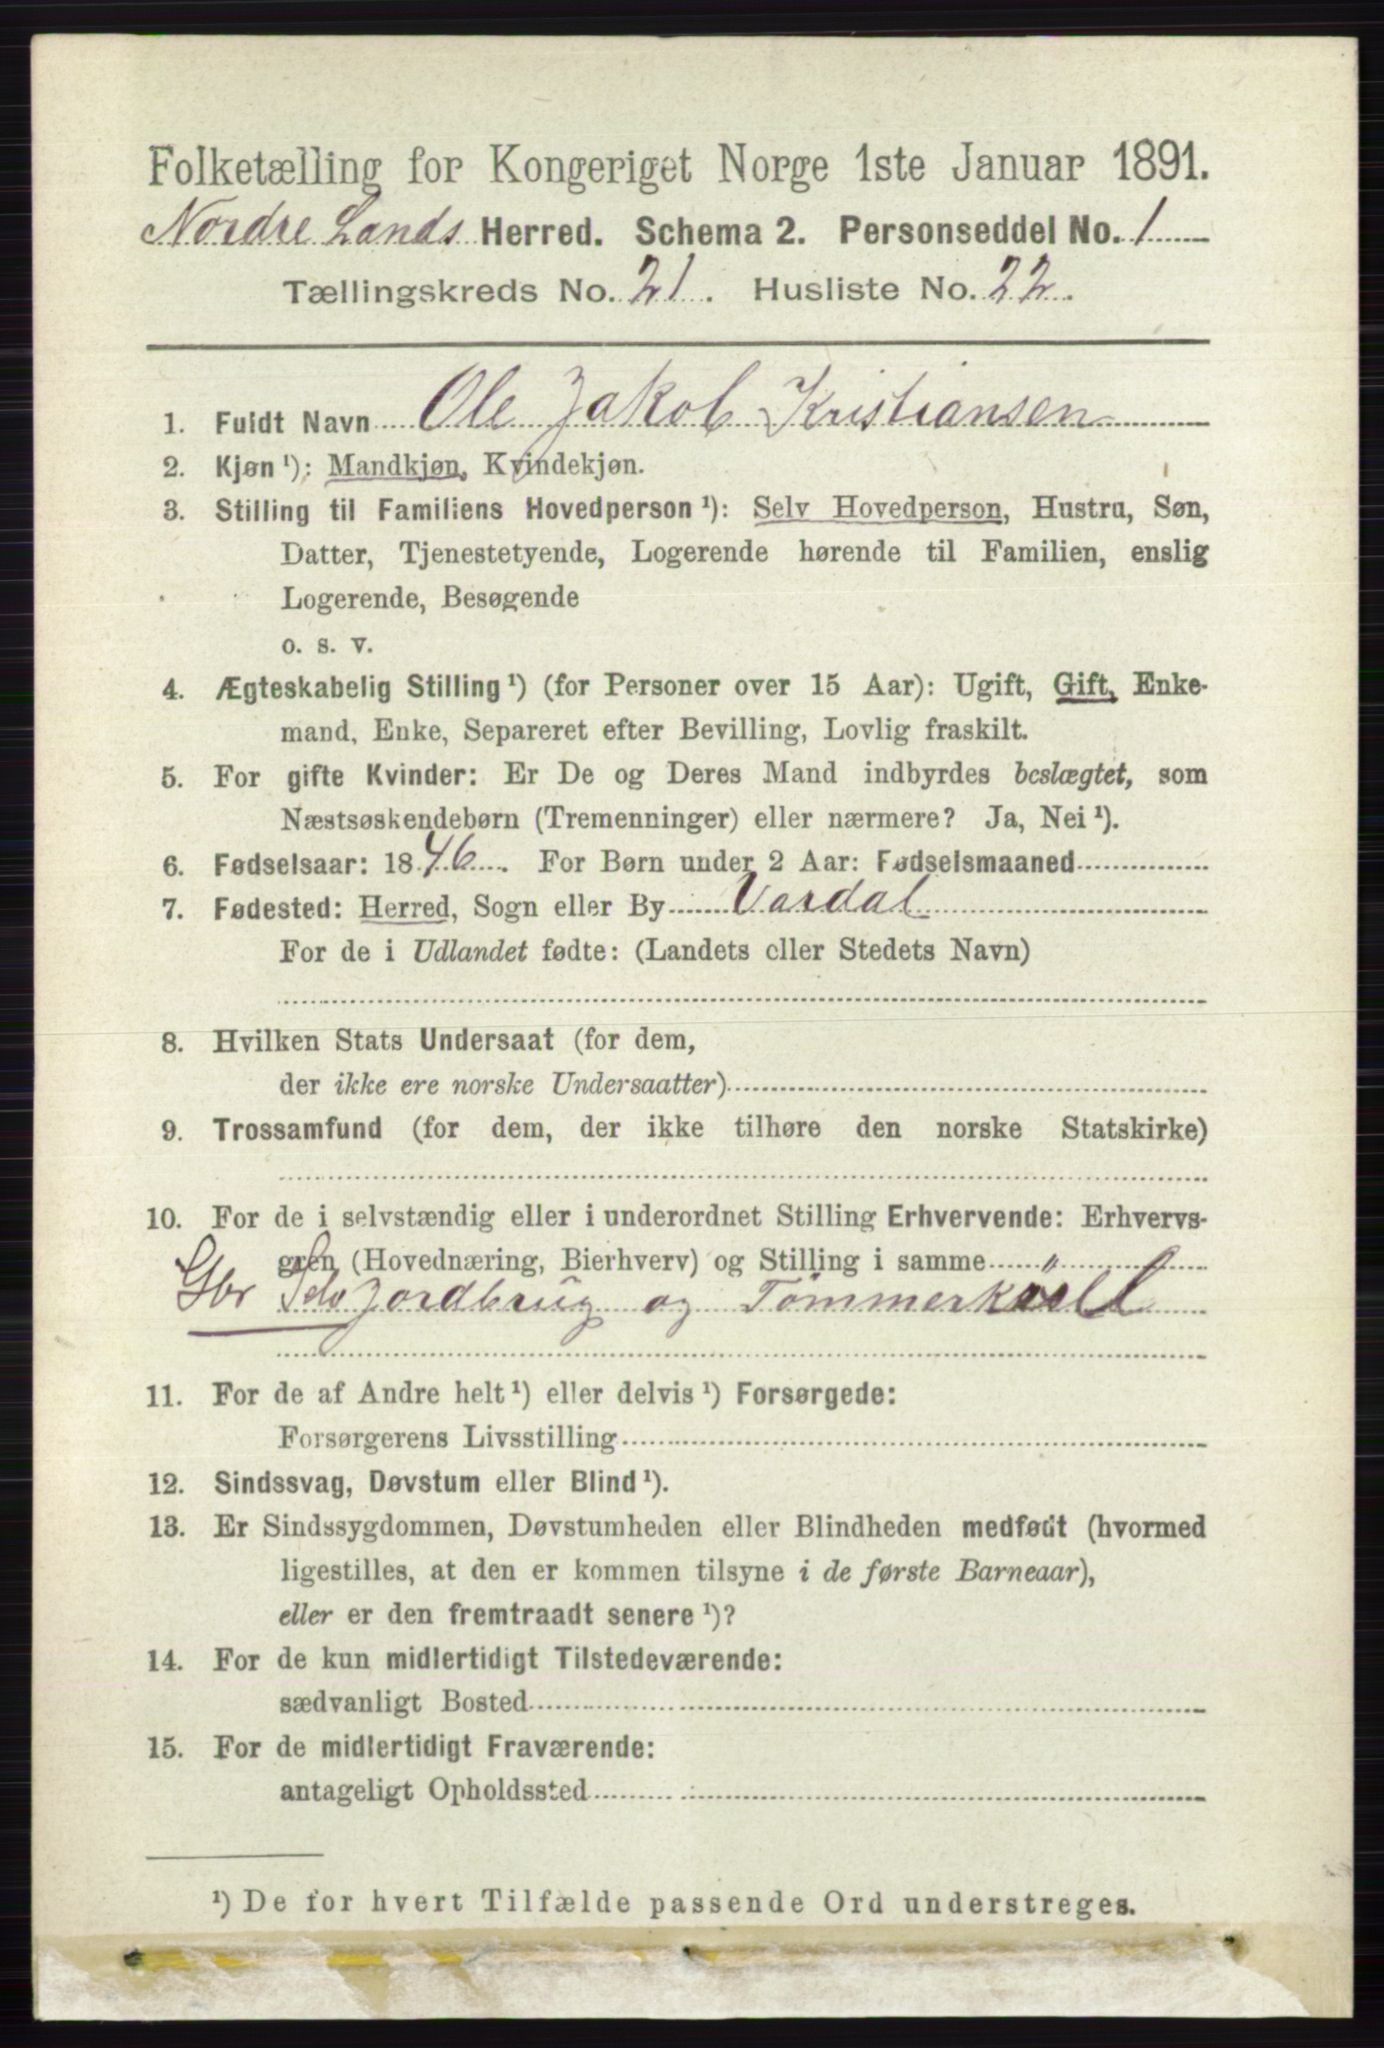 Folketælling for Kongeriget Norge 1ste Januar 1891.
Nordre Lands Herred. Schema 2. Personseddel No. 1
Tællingskreds No. 21. Husliste No. 22.
1. Fuldt Navn Ole Jakob Kristiansen
2. Kjøn¹): Mandkjøn, Kvindekjøn.
3. Stilling til Familiens Hovedperson¹): Selv Hovedperson, Hustru, Søn,
Datter, Tjenestetyende, Logerende hørende til Familien, enslig
Logerende, Besøgende
o. s. v.
4. Ægteskabelig Stilling¹) (for Personer over 15 Aar): Ugift, Gift, Enke-
mand, Enke, Separeret efter Bevilling, Lovlig fraskilt.
5. For gifte Kvinder: Er De og Deres Mand indbyrdes beslægtet, som
Næstsøskendebørn (Tremenninger) eller nærmere? Ja, Nei¹).
6. Fødselsaar: 1846. For Børn under 2 Aar: Fødselsmaaned
7. Fødested: Herred, Sogn eller By Vardal
For de i Udlandet fødte: (Landets eller Stedets Navn)
8. Hvilken Stats Undersaat (for dem,
der ikke ere norske Undersaatter)
9. Trossamfund (for dem, der ikke tilhøre den norske Statskirke)
10. For de i selvstændig eller i underordnet Stilling Erhvervende: Erhvervs-
gren (Hovednæring, Bierhverv) og Stilling i samme
Gbr Selv Jordbrug og
11. For de af Andre helt¹) eller delvis¹) Forsørgede:
Forsørgerens Livsstilling
12. Sindssvag, Døvstum eller Blind¹).
13. Er Sindssygdommen, Døvstumheden eller Blindheden medfødt (hvormed
ligestilles, at den er kommen tilsyne i de første Barneaar),
eller er den fremtraadt senere¹)?
14. For de kun midlertidigt Tilstedeværende:
sædvanligt Bosted
15. For de midlertidigt Fraværende:
antageligt Opholdssted
¹) De for hvert Tilfælde passende Ord understreges.